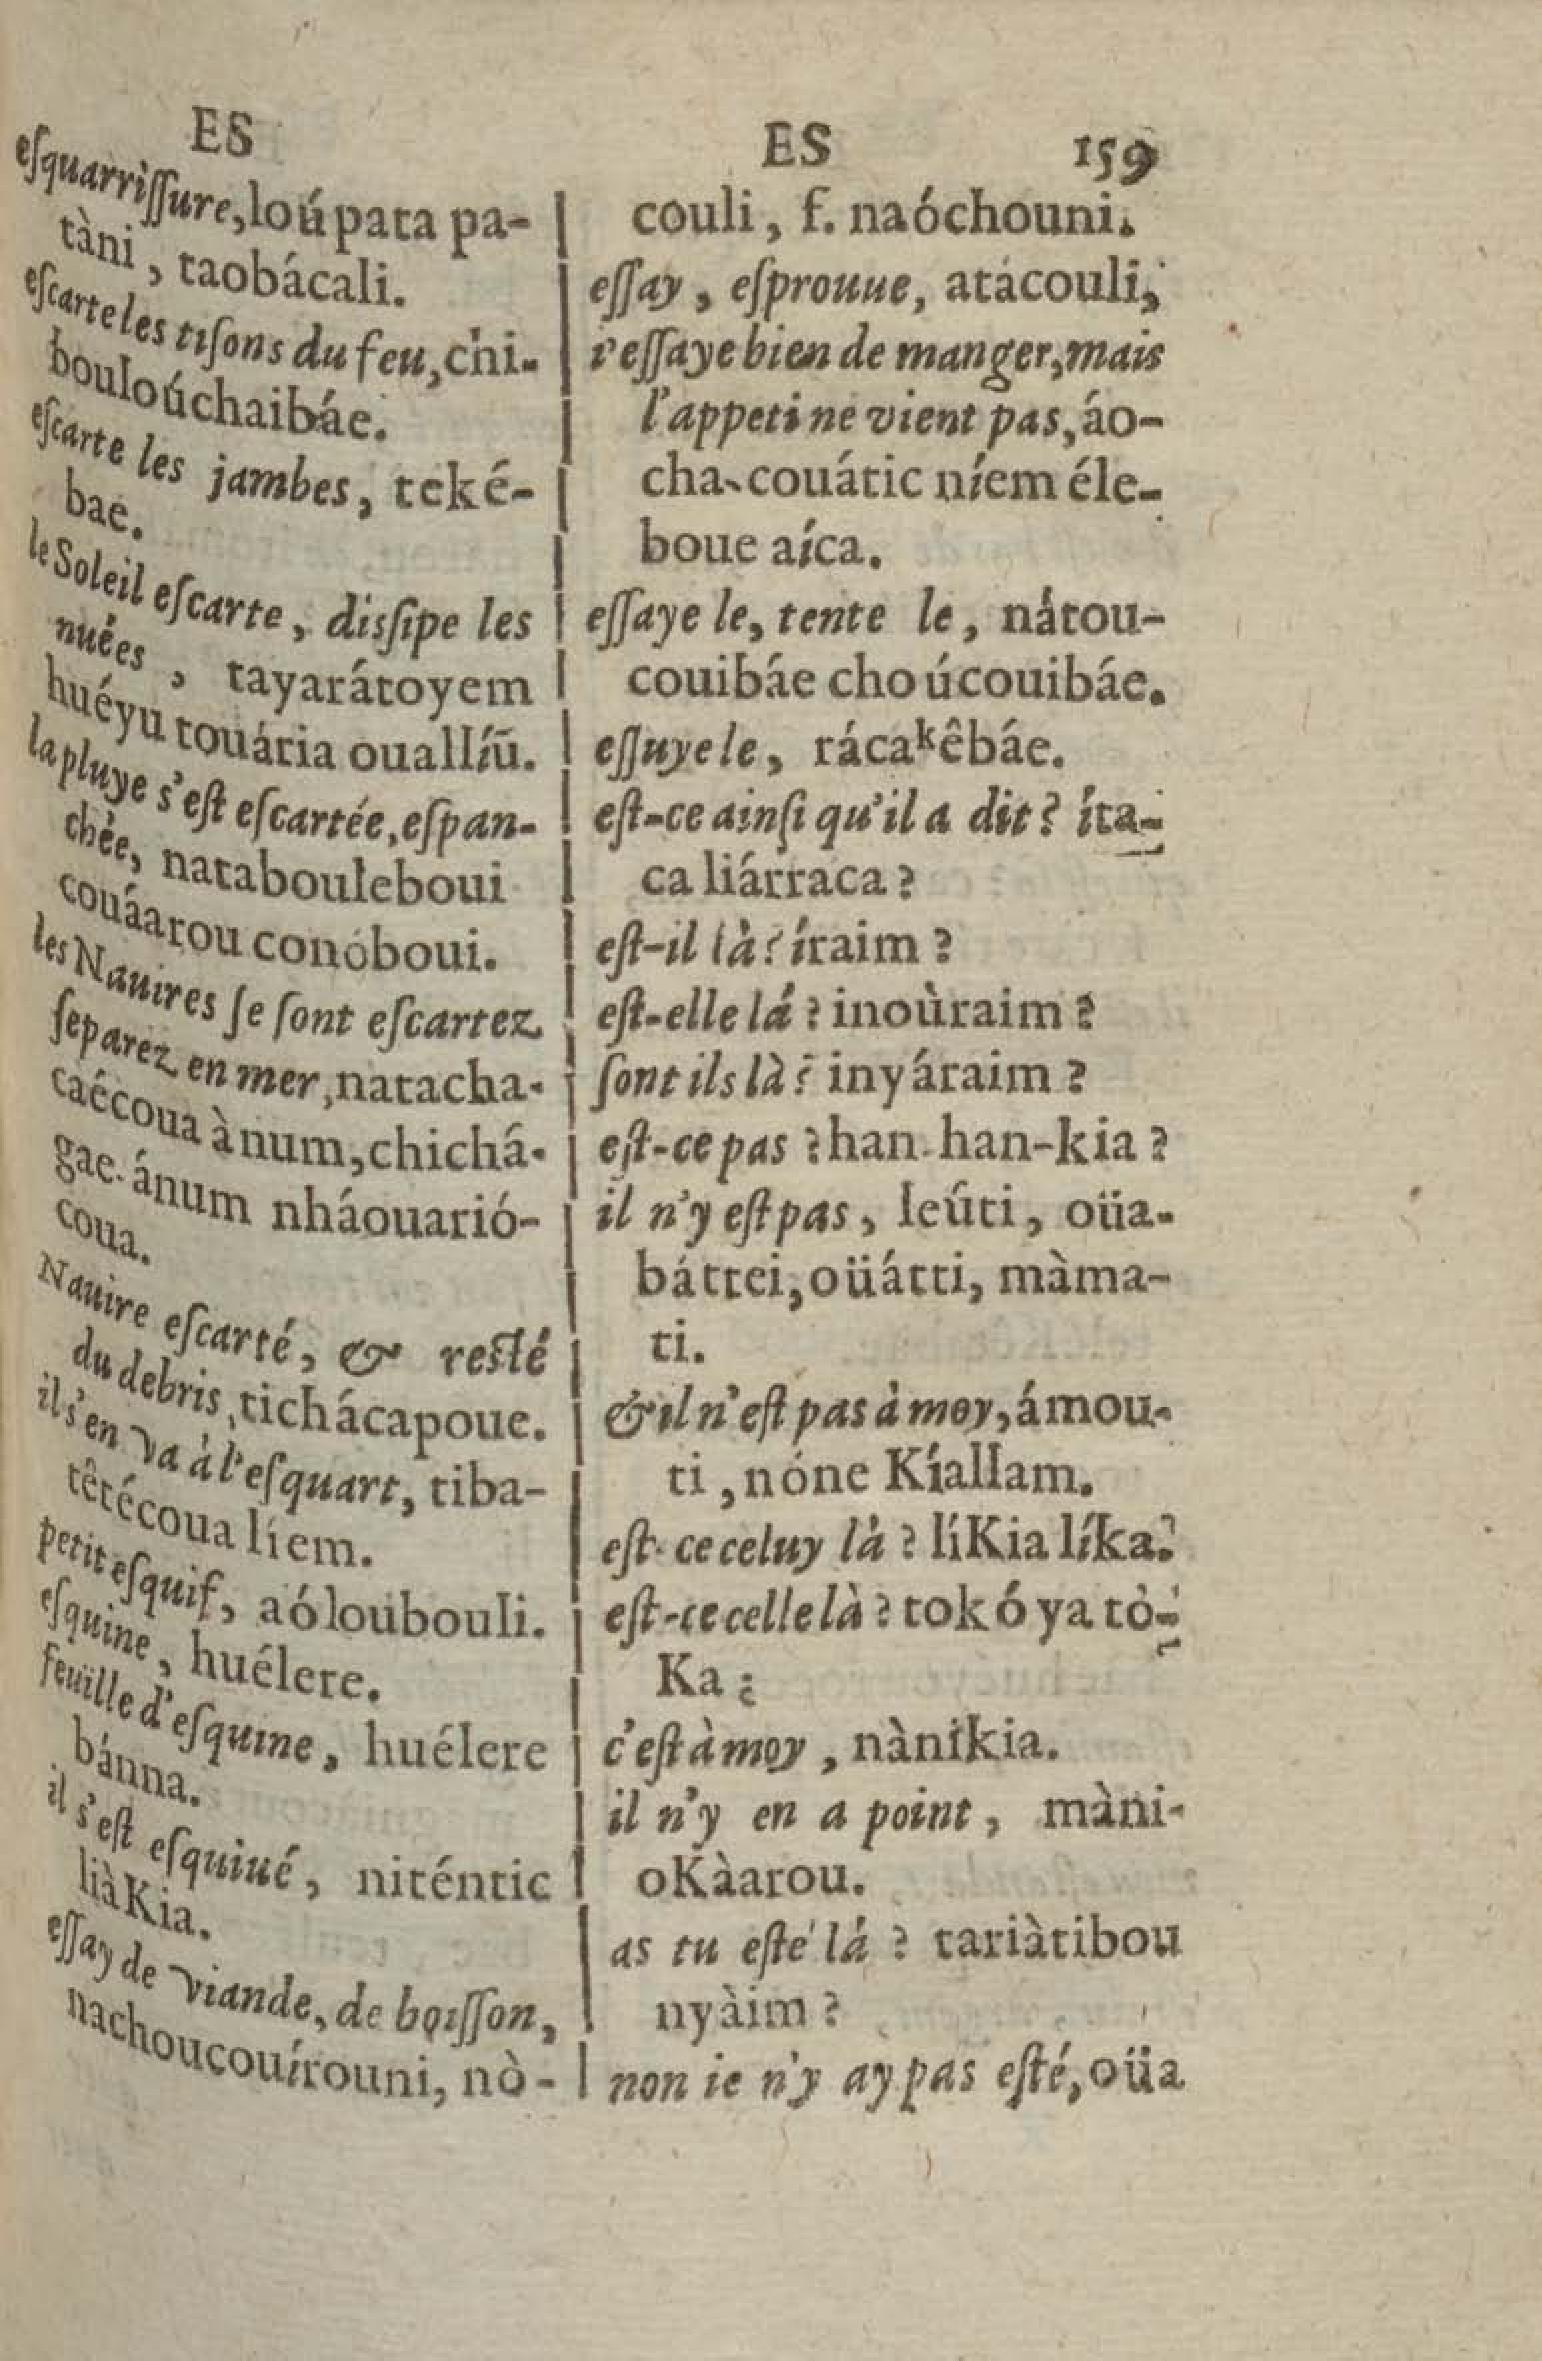 ES
eſquarriſſure, loúpata pa-
tàni, taobácali.
eſcarte les tiſons du feu, chi-
bouloúchaibáe.
eſcarte les jambes, teké-
bae.
le Soleil eſcarte, disſipe les
nuées, tayarátoyem
huéyu touária oualliū.
la pluye s'eſt eſcartée, eſpan-
chée, natabouleboui
couáarou conóboui.
les Nauires ſe ſont eſcartez
ſeparez en mer, natacha-
caécoua ànum, chichá-
gae ánum nháouarió-
coua.
Nauire eſcarté, & reſté
du debris, tichácapoue.
il s'en va à l'eſquart, tiba-
têtécoua líem.
petit eſquif, aóloubouli.
eſquine, huélere.
feuille d'eſquine, huélere
bánna.
il s'eſt eſquiué, niténtic
liàKia.
eſſay de viande, de boiſſon,
nachoucouírouni, nò-
ES 159
couli, f. naóchouni.
eſſay, eſprouue, atácouli,
i'eſſaye bien de manger, mais
l'appeti ne vient pas, áo-
cha couátic níem éle-
boue aíca.
eſſaye le, tente le, nátou-
couibáe choúcouibáe.
eſſuye le, rácakêbáe.
eſt-ce ainſi qu'il a dit? íta-
ca liárraca?
eſt-il là? íraim?
eſt-elle lá? inoùraim?
ſont ils là? inyáraim?
eſt-ce pas? han han-kia?
il n'y eſt pas, leúti, oüa-
báttei, oüátti, màma-
ti.
& il n'eſt pas à moy, ámou-
ti, nóne Kíallam.
eſt-ce celuy là? líKia líka?
eſt-ce celle là? tokóya tò-
Ka?
c'eſt à moy, nànikia.
il n'y en a point, màni-
oKàarou.
as tu eſté lá? tariàtibou
nyàim?
non ie n'y ay pas eſté, oüa